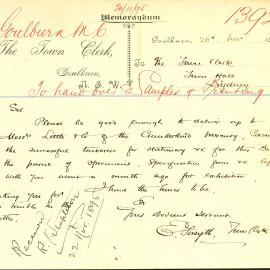 20/11/95
1392
Goulburn M.C.
Memorandum
The Town Clerk,
Goulburn, 20th Nov
Goulburn,
To The Town Clerk
N.S.W.
Town Hall
Sydney
To hand over to Samples of Printing
Sir
Please be good enough to deliver up to
Messrs Little & Co of the Cumberland Mercury,
the successful tenderers for stationery &c for this
the parcel of Specimens Specification &c
with you about a month ago for exhibition
I have the honor to be
Sir
Your obedient servant
Town Clerk
Received
22 Nov 1895